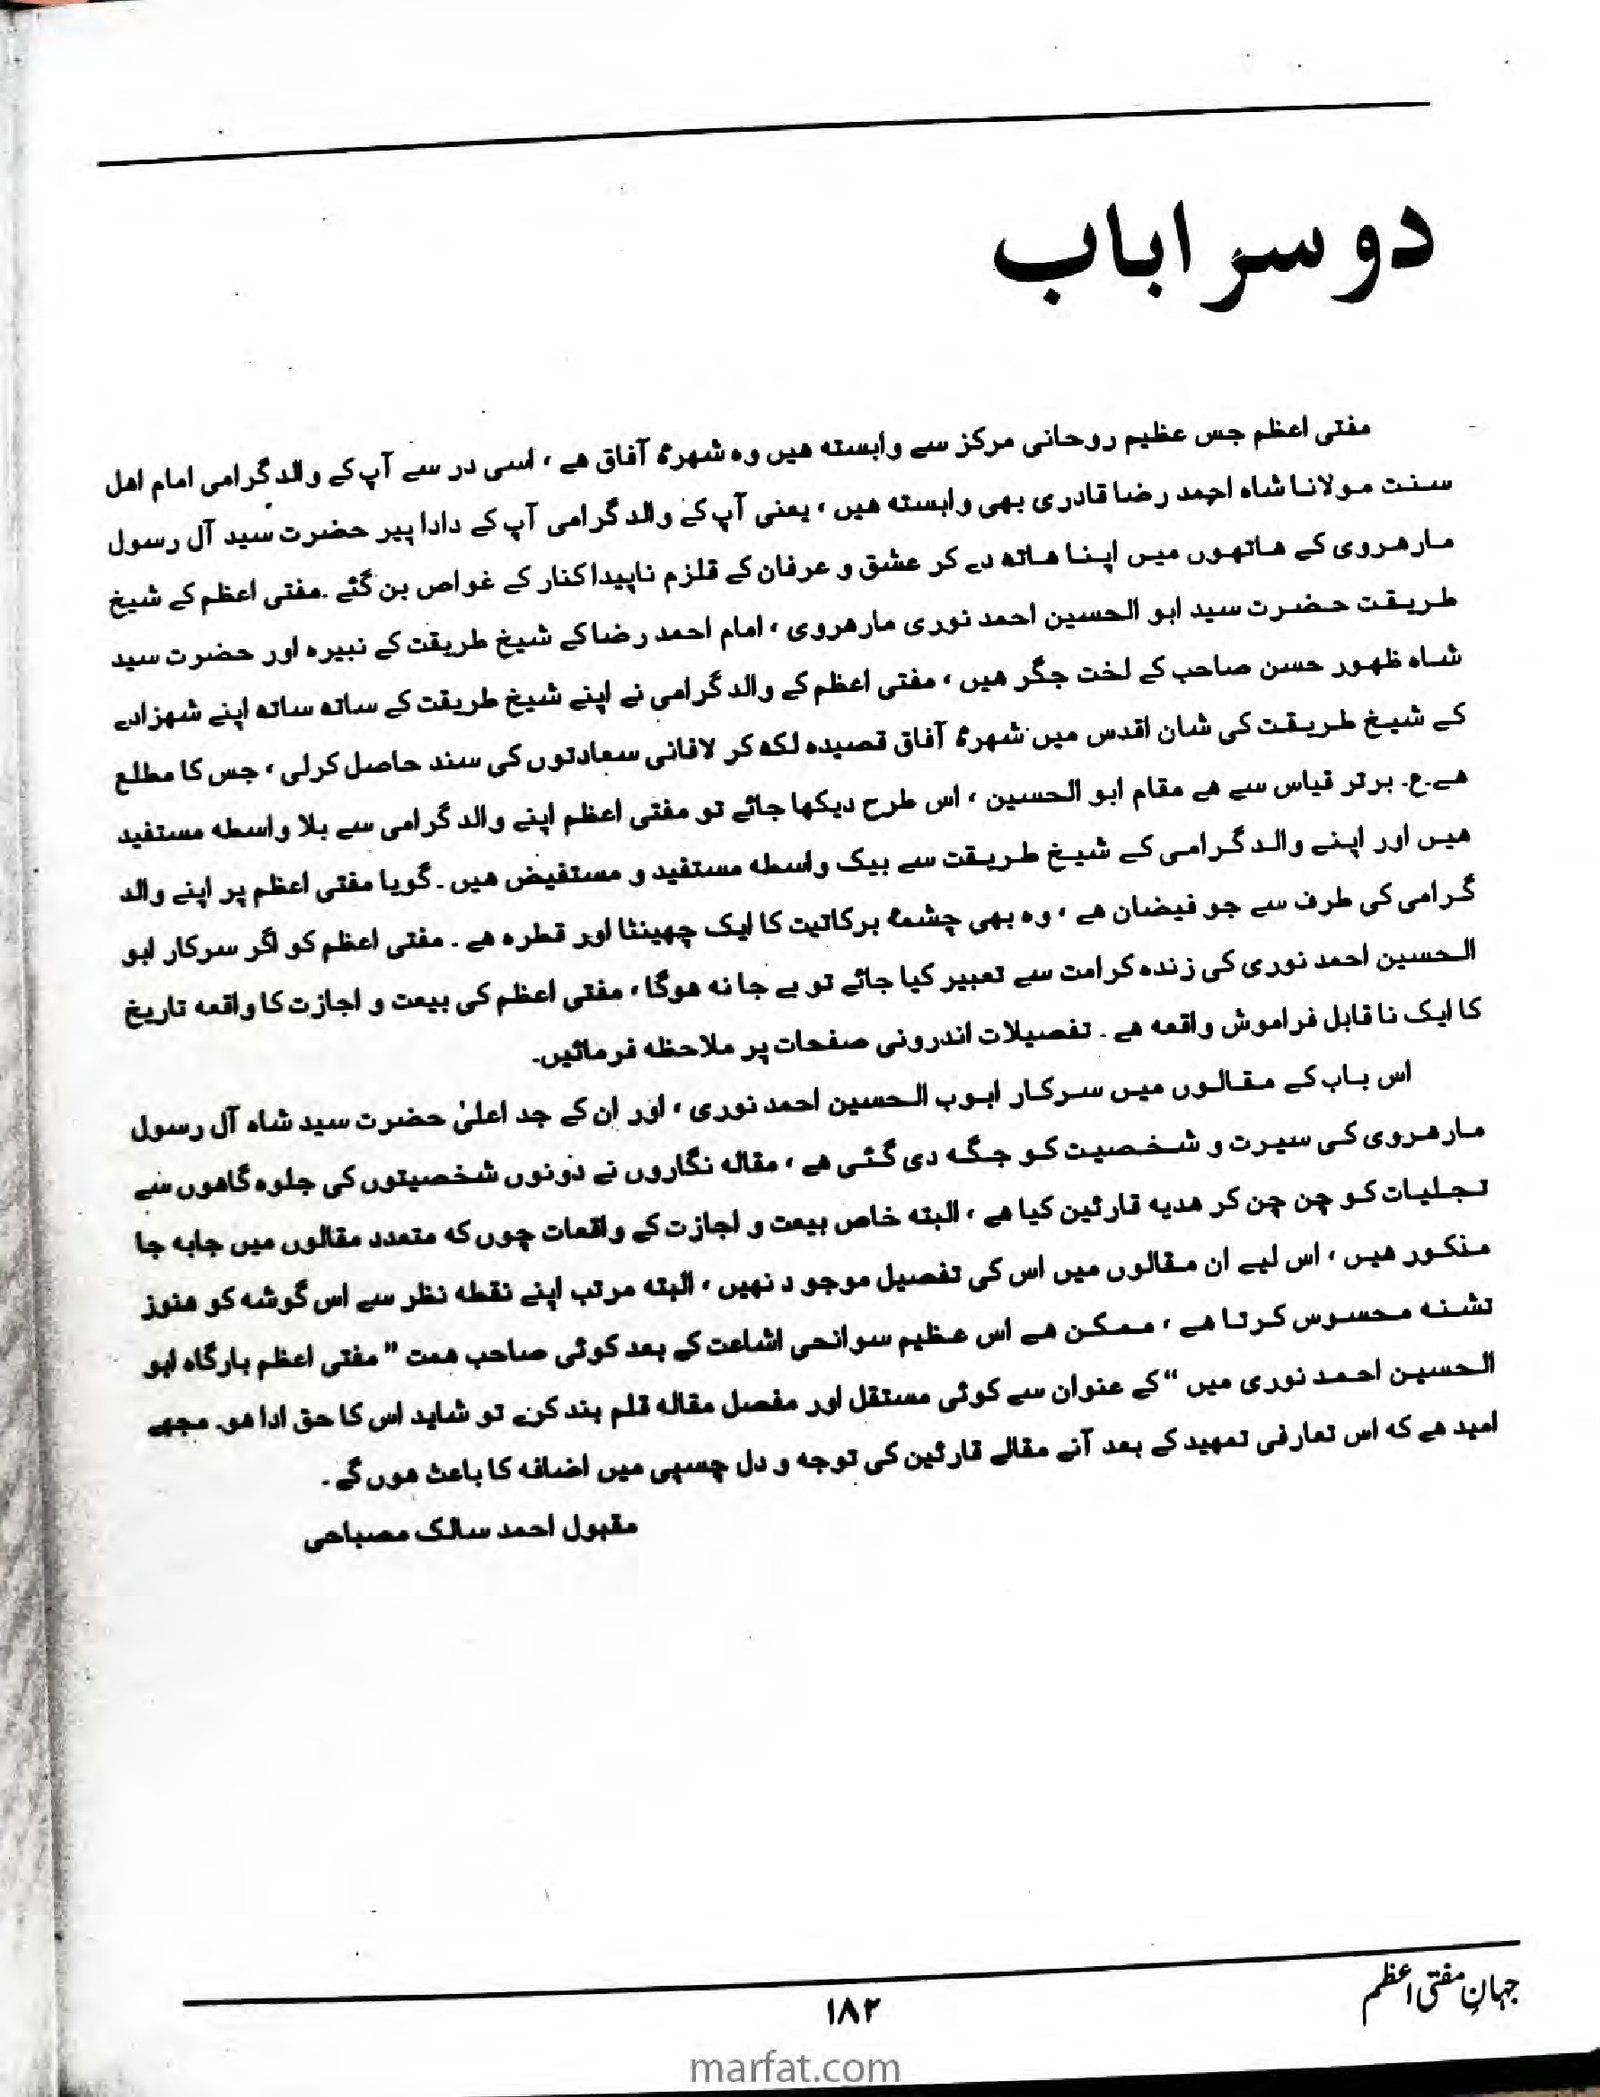 دوسرا باب
مفتی اعظم جس عظیم روحانی مرکز سے وابستہ ھیں وہ شھرۂ آفاق ھے ، اسی در سے آپ کے والد گرامی امام اھل
سنت مولانا شاہ احمد رضا قادری بھی وابستہ ھیں ، یعنی آپ کے والد گرامی آپ کے دادا پیر حضرت سید آل رسول
مارھروی کے ھاتھوں میں اپنا ھاتھ دے کر عشق و عرفان کے قلزم ناپیدا کنار کے غواص بن گئے ۔مفتی اعظم کے شیخ
طریقت حضرت سید ابو الحسین احمد نوری مارھروی ، امام احمد رضا کے شیخ طریقت کے نبیرہ اور حضرت سید
شاہ ظھور حسن صاحب کے لخت جگر ھیں ، مفتی اعظم کے والد گرامی نے اپنے شیخ طریقت کے ساتھ ساتھ اپنے شھزادے
کے شیخ طریقت کی شان اقدس میں شھرۂ آفاق قصیدہ لکھ کر لافانی سعادتوں کی سند حاصل کرلی ، جس کا مطلع
ھے۔ع۔ برتر قیاس سے ھے مقام ابو الحسین ، اس طرح دیکھا جائے تو مفتی اعظم اپنے والد گرامی سے بلا واسطہ مستفید
ھیں اور اپنے والد گرامی کے شیخ طریقت سے بیک واسطہ مستفید و مستفیض ھیں ۔ گویا مفتی اعظم پر اپنے والد
گرامی کی طرف سے جو فیضان ھے ، وہ بھی چشمۂ برکاتیت کا ایک چھینٹا اور قطرہ ھے ۔ مفتی اعظم کو اگر سرکار ابو
الحسین احمد نوری کی زندہ کرامت سے تعبیر کیا جائے تو بے جا نہ ھوگا ، مفتی اعظم کی بیعت و اجازت کا واقعہ تاریخ
کا ایک نا قابل فراموش واقعہ ھے ۔ تفصیلات اندرونی صفحات پر ملاحظہ فرمائیں۔
اس باب کے مقالوں میں سرکار ابوب الحسین احمد نوری ، اور ان کے جد اعلیٰ حضرت سید شاہ آل رسول
مارھروی کی سیرت و شخصیت کو جگہ دی گئی ھے ، مقالہ نگاروں نے دونوں شخصیتوں کی جلوہ گاھوں سے
تجلیات کو چن چن کر ھدیہ قارئین کیا ھے ، البتہ خاص بیعت و اجازت کے واقعات چوں کہ متعدد مقالوں میں جابہ جا
مذکور ھیں ، اس لیے ان مقالوں میں اس کی تفصیل موجود نھیں ، البتہ مرتب اپنے نقطہ نظر سے اس گوشہ کو ھنوز
تشنہ محسوس کرتا ھے ، ممکن ھے اس عظیم سوانحی اشاعت کے بعد کوئی صاحب ھمت ” مفتی اعظم بارگاہ ابو
الحسین احمد نوری میں “ کے عنوان سے کوئی مستقل اور مفصل مقالہ قلم بند کرے تو شاید اس کا حق ادا ھو۔ مجھے
امید ھے کہ اس تعارفی تمھید کے بعد آنے مقالے قارئین کی توجہ و دل چسپی میں اضافہ کا باعث ھوں گے ۔
مقبول احمد سالک مصباحی
جہانِ مفتی اعظم
۱۸۲
marfat.com